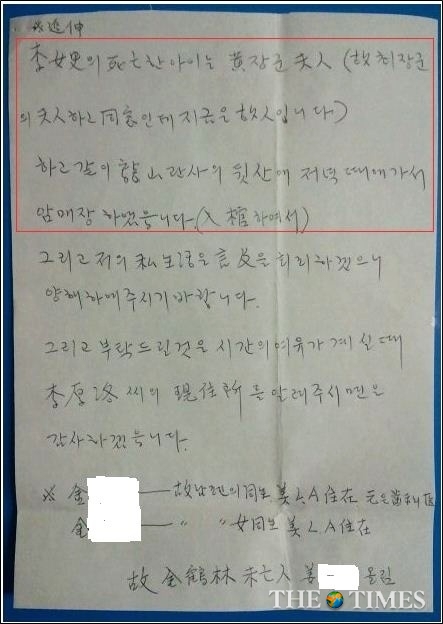 ※ 追伸
李女史의 死亡한 아이는 黃장군 夫人 (故 최장군
의 夫人하고 同窓인데 지금은 故人입니다.)
하고 같이 龍山 관사의 뒷산에 저녁때에 가서
암매장 하였읍니다. (入棺하여서)
그리고 저의 私生活은 言及을 회피하겠으니
양해하여주시기 바랍니다.
그리고 부탁드린것은 시간의 여유가 계실때
李厚洛 씨의 現住所를 알려주시면은
감사하겠읍니다.
※ 金 — 故남편의 同生 美 L.A 住在 元은
金 — 〃 〃 女同生 美 L.A 住在
故 金鶴林 未亡人 姜 올림
THE TIMES